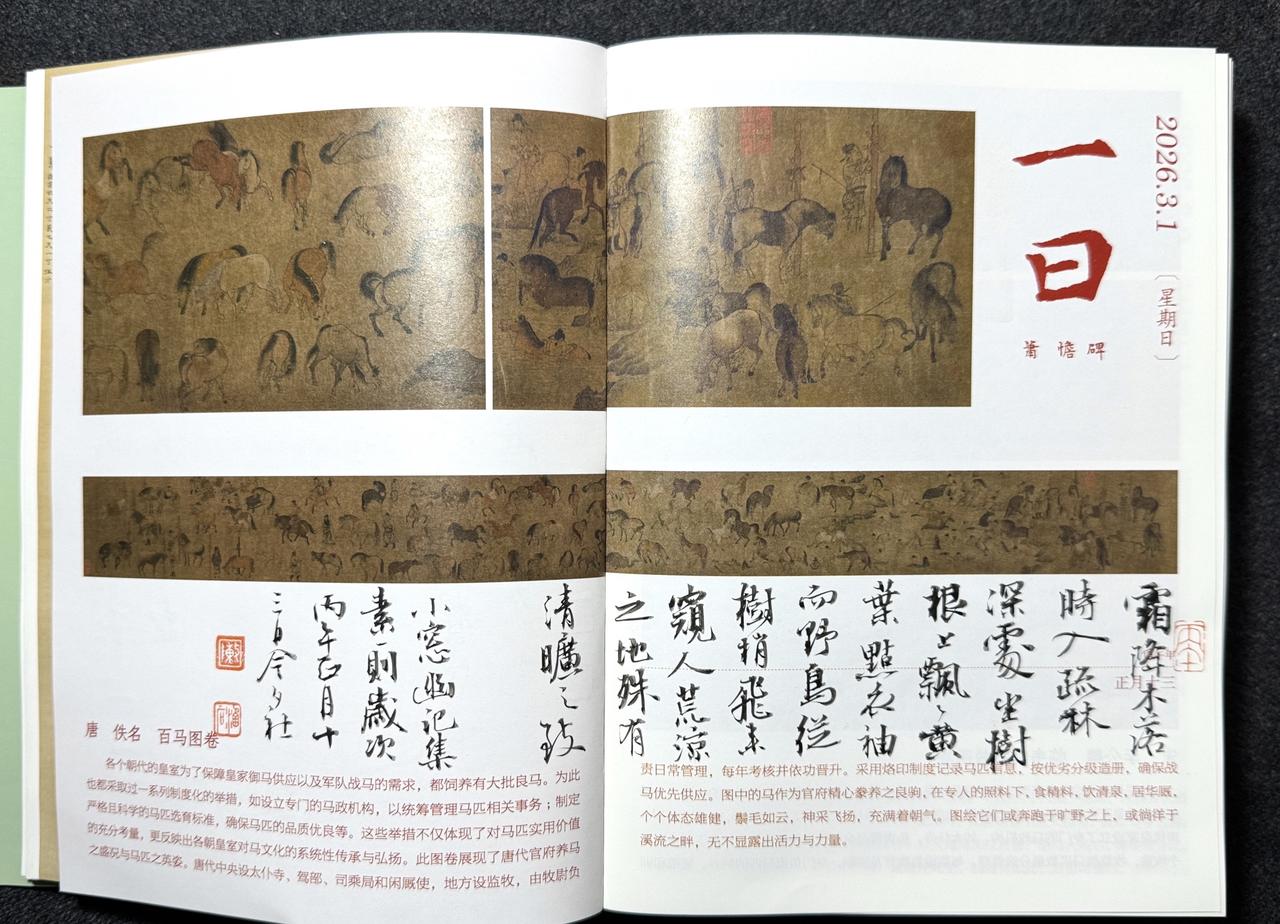 2026.3.1
〔星期日〕
一日
萧憺碑
正月十三
霜降木落
時入疏林
深處坐樹
根上飄〻黄
葉點衣袖
而野鳥從
樹梢飛来
窺人荒涼
之地殊有
清曠之致
小窓幽记集
素一則歲次
丙午正月十
三日今夕社
唐 佚名 百马图卷
各个朝代的皇室为了保障皇家御马供应以及军队战马的需求，都饲养有大批良马。为此
也都采取过一系列制度化的举措，如设立专门的马政机构，以统筹管理马匹相关事务；制定
严格且科学的马匹选育标准，确保马匹的品质优良等。这些举措不仅体现了对马匹实用价值
的充分考量，更反映出各朝皇室对马文化的系统性传承与弘扬。此图卷展现了唐代官府养马
之盛况与马匹之英姿。唐代中央设太仆寺、驾部、司乘局和闲厩使，地方设监牧，由牧尉负
责日常管理，每年考核并依功晋升。采用烙印制度记录马匹信息，按优劣分级造册，确保战
马优先供应。图中的马作为官府精心豢养之良驹，在专人的照料下，食精料，饮清泉，居华厩，
个个体态雄健，鬃毛如云，神采飞扬，充满着朝气。图绘它们或奔跑于旷野之上，或徜徉于
溪流之畔，无不显露出活力与力量。